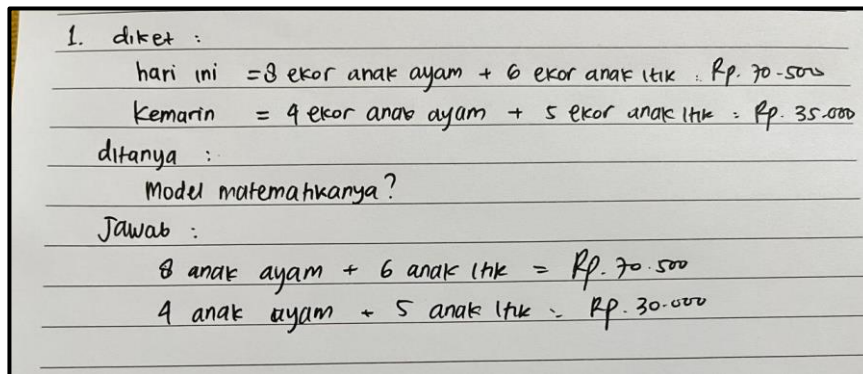 1. diket :
hari ini = 8 ekor anak ayam + 6 ekor anak itik : Rp. 70.500
Kemarin = 4 ekor anak ayam + 5 ekor anak itik = Rp. 35.000
ditanya :
Model matematikanya?
Jawab :
8 anak ayam + 6 anak itik = Rp. 70.500
4 anak ayam + 5 anak itik = Rp. 30.000